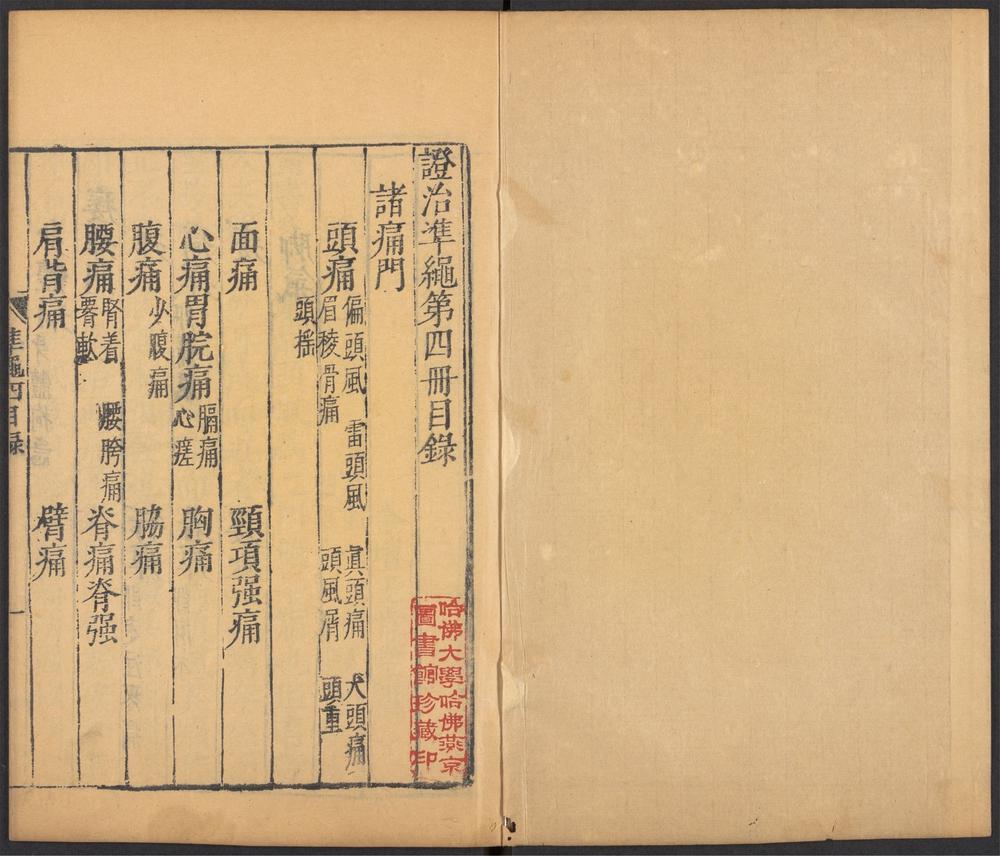 證治準繩第四冊目錄
諸痛門
頭痛 偏頭風 雷頭風 眞頭痛 大頭痛
眉稜骨痛 頭風屑 頭重
頭摇
面痛 頸項强痛
心痛胃脘痛 膈痛 心瘥 胸痛
腹痛 少腹痛 脇痛
腰痛 腎着 腰胯痛 脊痛脊强
肩背痛 臂痛
準繩四目錄 一
哈佛大學哈佛燕京
圖書館珍藏印